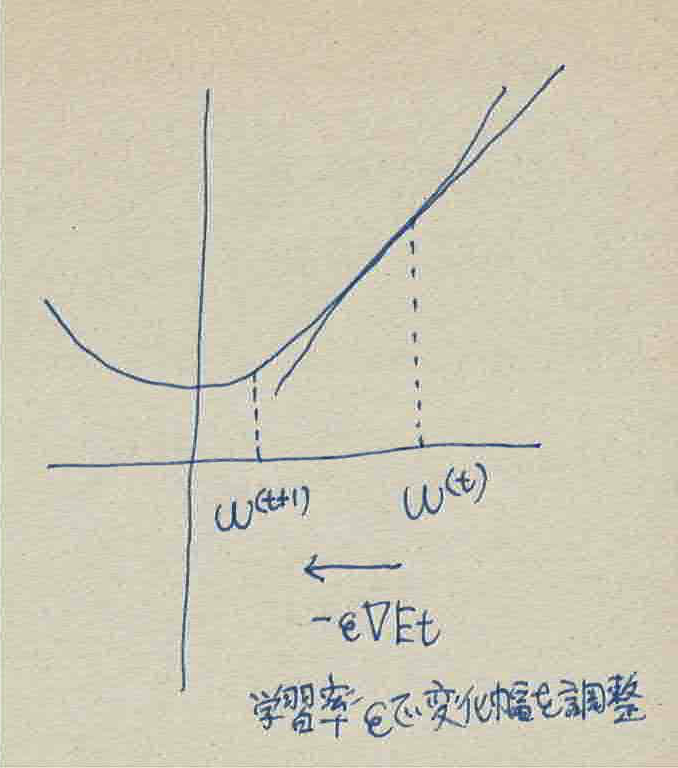 ω(t+1) ω(t)
-ε∇Et
学習率εで変化幅を調整